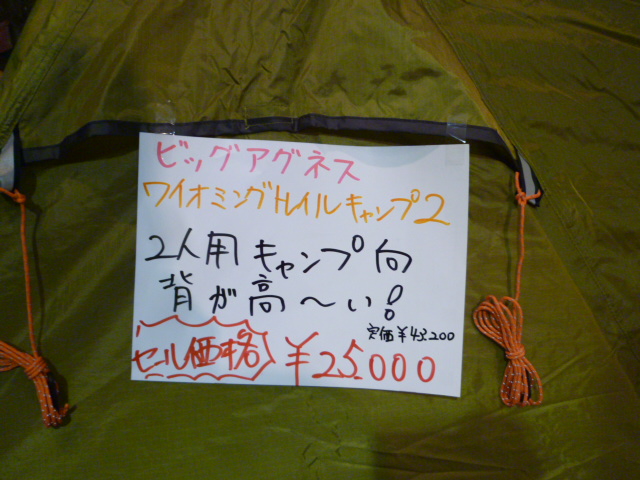 ビッグアグネス
ワイオミングトレイルキャンプ2
2人用キャンプ向
背が高〜い!
定価¥43,200
セール価格 ¥25,000